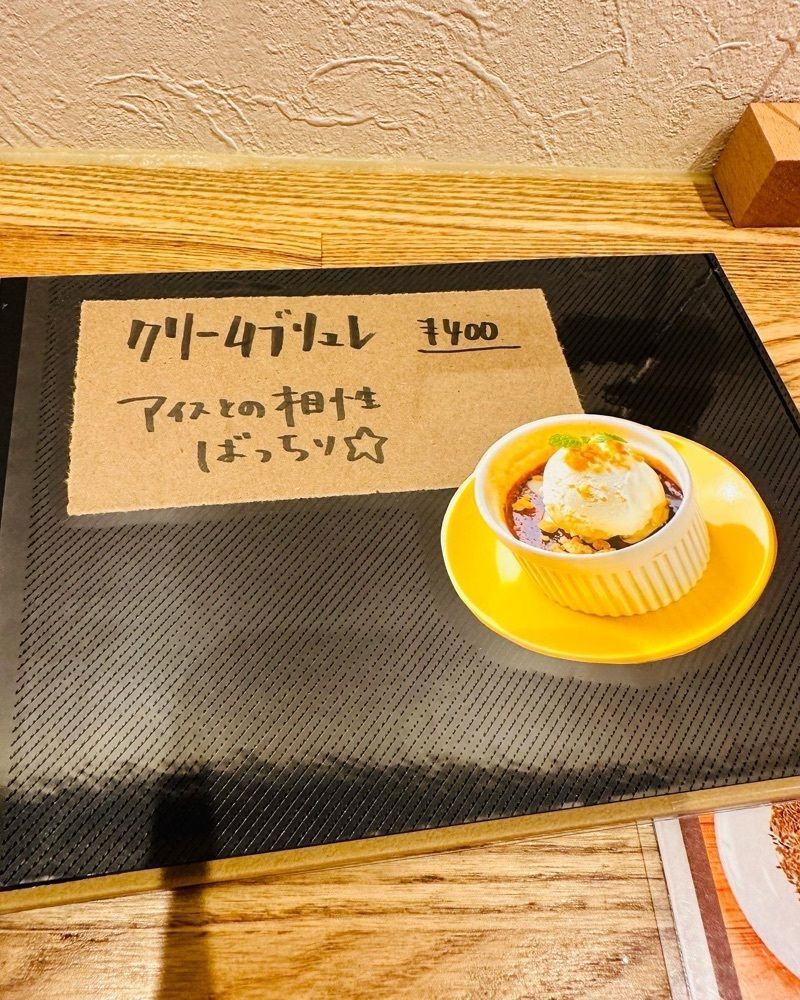 クリームブリュレ ¥400
アイスとの相性
ばっちり☆